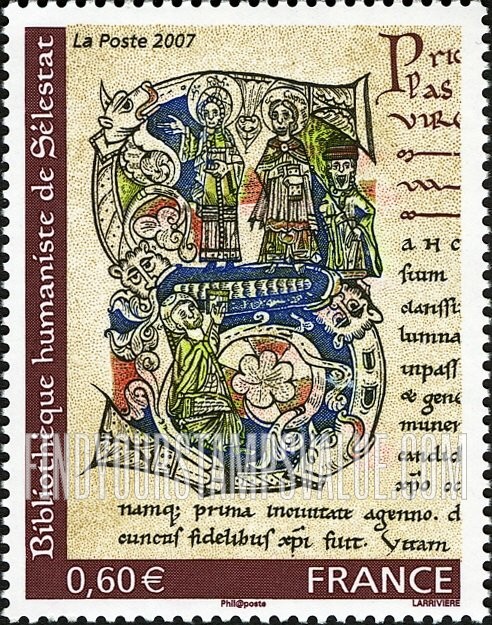 La Poste 2007
Bibliothèque humaniste de Sélestat
Pric
Plas
VIRG
A H C
sium
clarissi
lumna
inpass
& gene
muner
candid
xp̄o oc
namq; prima inouitate agenno. d
cunctis fidelibus xp̄i fuit. Vitam
FINDYOURSTAMPSVALUE.COM
0,60€
FRANCE
Phil@poste
LARRIVIÈRE